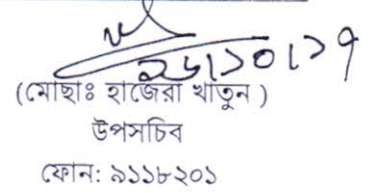 ২৬।১০।১৭
(মোছাঃ হাজেরা খাতুন )
উপসচিব
ফোন: ৯১১৮২০১